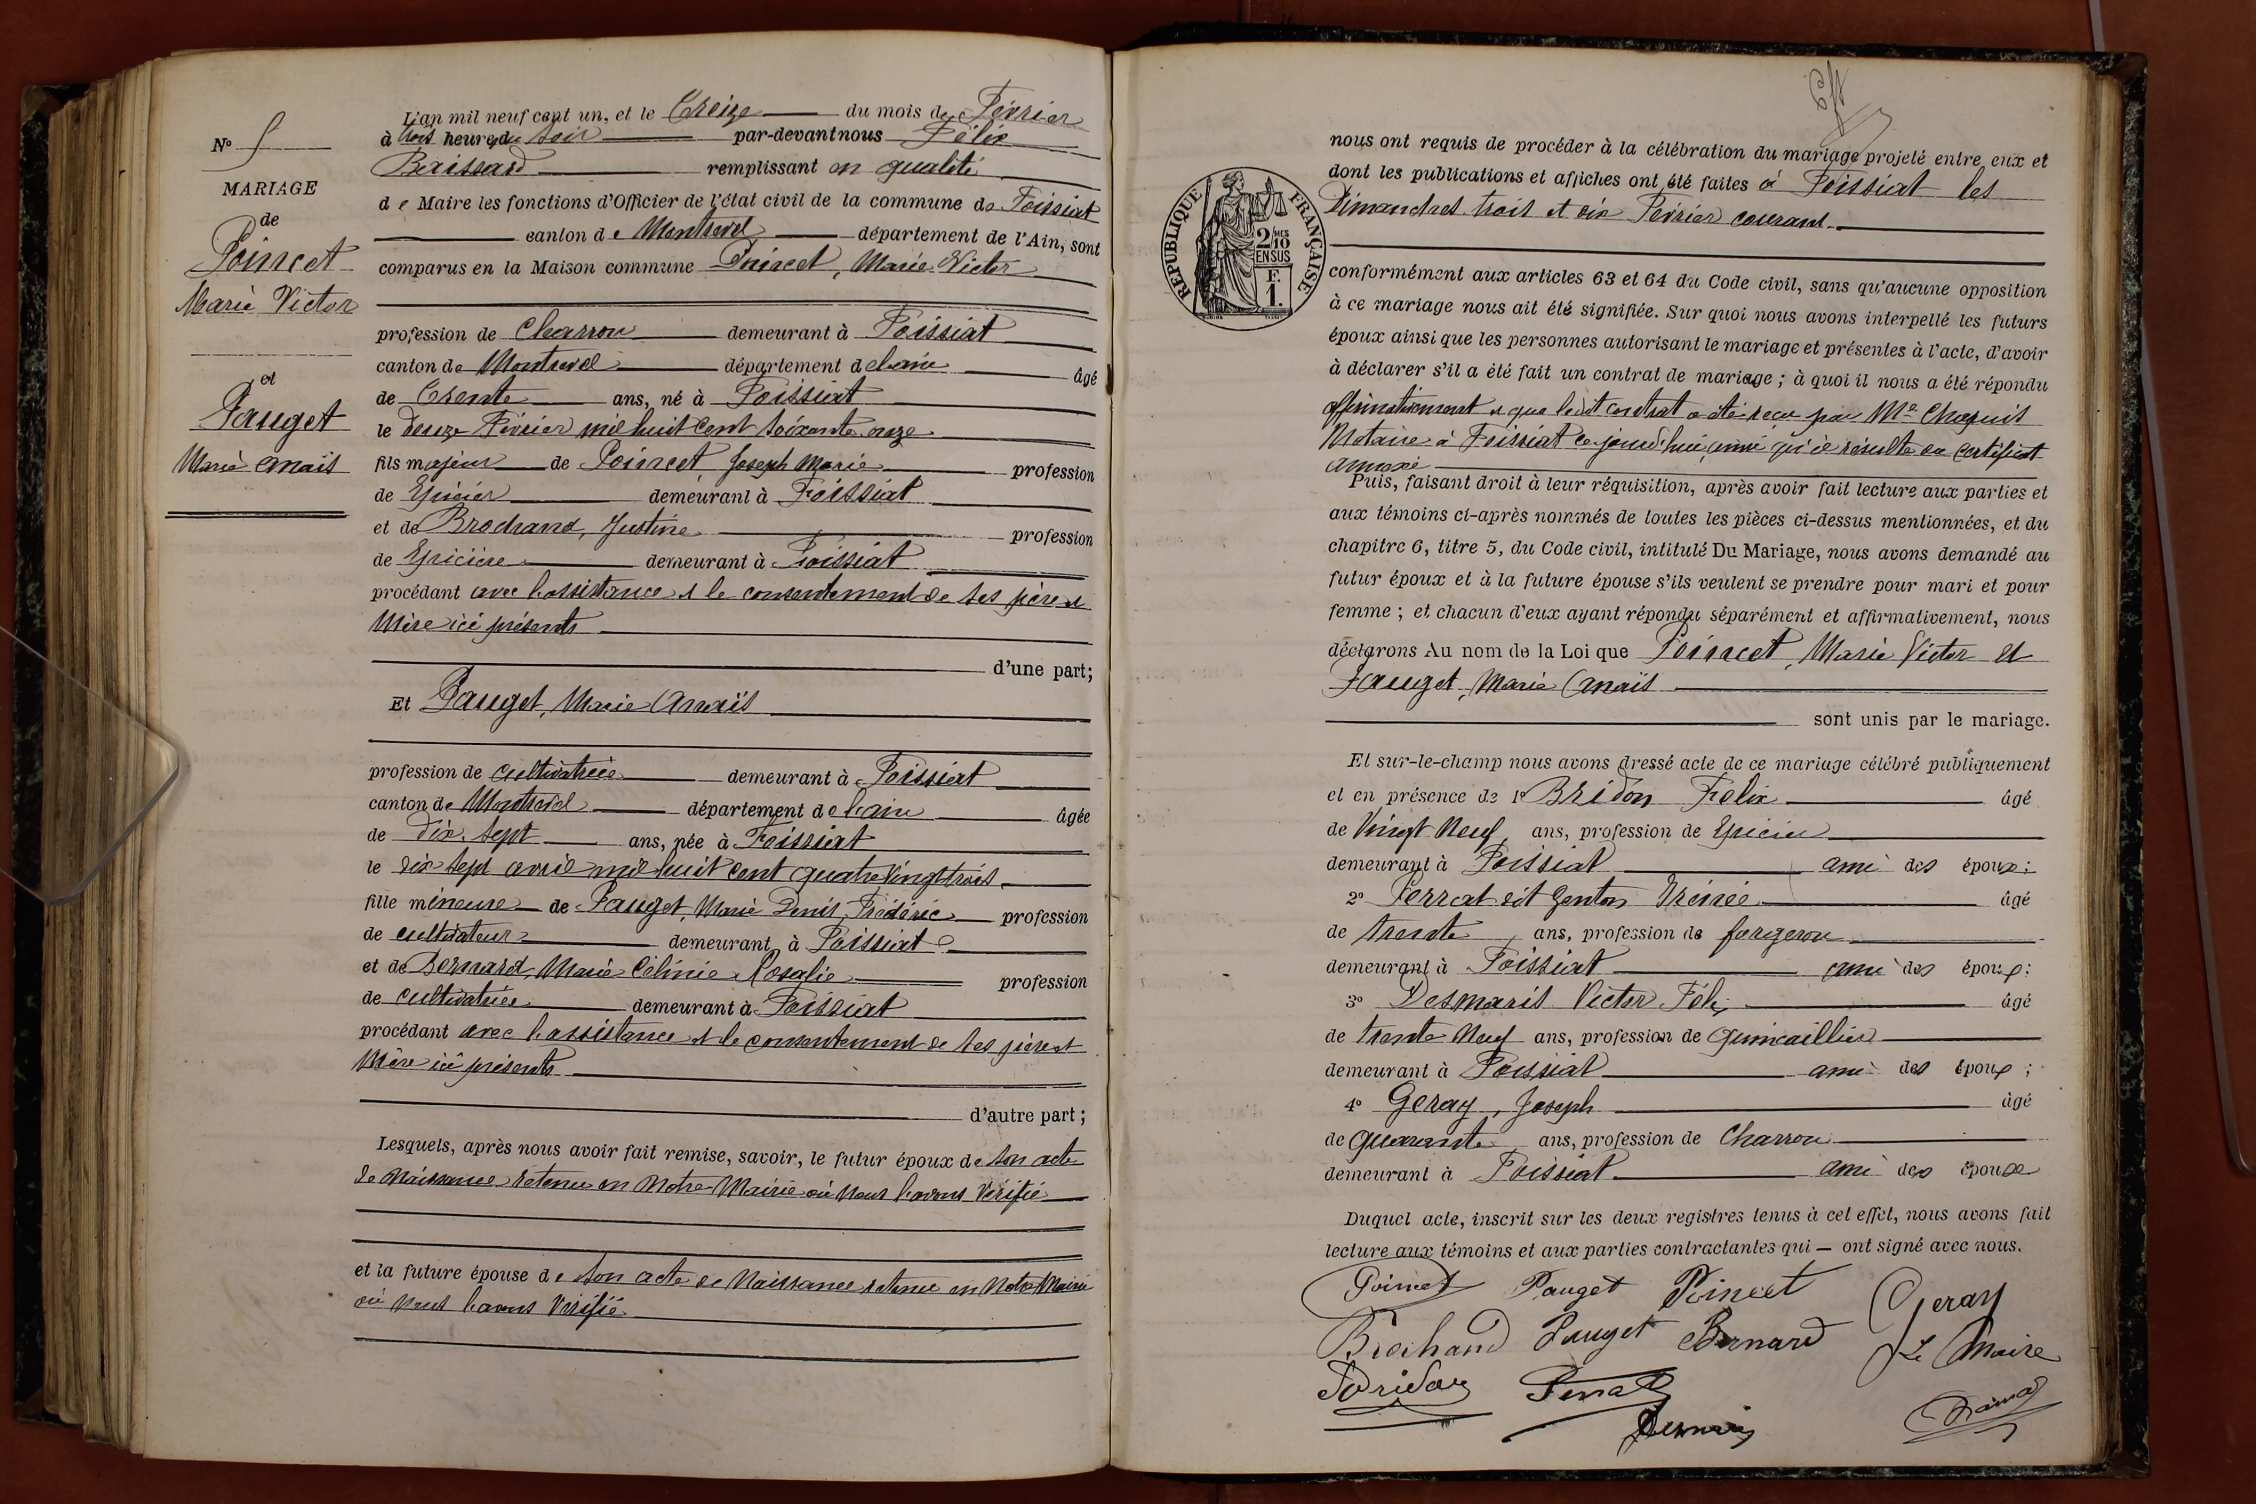 No 5
MARIAGE
de
Poincet
Marie Victor
et
Pauget
Marie Anaïs
L'an mil neuf cent un, et le Treize du mois de Février
à trois heures du soir par-devant nous Félix
remplissant en qualité
de Maire les fonctions d'Officier de l'état civil de la commune de Foissiat
canton de Montrevel département de l'Ain, sont
comparus en la Maison commune Poincet, Marie Victor
profession de Charron demeurant à Foissiat
canton de Montrevel département de l'ain âgé
de Trente ans, né à Foissiat
le Douze Février mil huit Cent Soixante onze
fils majeur de Poincet Joseph Marie profession
de Epicier demeurant à Foissiat
et de Brochand, Justine profession
de Epicière demeurant à Foissiat
procédant avec l'assistance et le consentement de ses père et
Mère ici présents
d'une part;
Et Pauget, Marie Anaïs
profession de cultivatrice demeurant à Foissiat
canton de Montrevel département de l'ain âgée
de Dix-Sept ans, née à Foissiat
le Dix Sept avril mil huit Cent quatre Vingt trois
fille mineure de Pauget, Marie Denis, Frédéric profession
de cultivateur demeurant à Foissiat
et de Bernard, Marie Célinie Rosalie profession
de cultivatrice demeurant à Foissiat
procédant avec l'assistance et le consentement de ses père et
Mère ici présents
d'autre part;
Lesquels, après nous avoir fait remise, savoir, le futur époux de son acte
de Naissance retenu en Notre Mairie où Nous l'avons Vérifié
et la future épouse de son acte de Naissance retenu en Notre Mairie
où Nous l'avons Vérifié
nous ont requis de procéder à la célébration du mariage projeté entre eux et
dont les publications et affiches ont été faites à Foissiat les
Dimanches trois et dix Février courant
RÉPUBLIQUE FRANÇAISE
2/10 MES
EN SUS
F.
1.
conformément aux articles 63 et 64 du Code civil, sans qu'aucune opposition
à ce mariage nous ait été signifiée. Sur quoi nous avons interpellé les futurs
époux ainsi que les personnes autorisant le mariage et présentes à l'acte, d'avoir
à déclarer s'il a été fait un contrat de mariage; à quoi il nous a été répondu
affirmativement et que ledit contrat a été reçu par Me Chapuis
Notaire à Foissiat ce jourd'hui, ainsi qu'il résulte du certificat
annexé
Puis, faisant droit à leur réquisition, après avoir fait lecture aux parties et
aux témoins ci-après nommés de toutes les pièces ci-dessus mentionnées, et du
chapitre 6, titre 5, du Code civil, intitulé Du Mariage, nous avons demandé au
futur époux et à la future épouse s'ils veulent se prendre pour mari et pour
femme; et chacun d'eux ayant répondu séparément et affirmativement, nous
déclarons Au nom de la Loi que Poincet, Marie Victor et
Pauget, Marie Anaïs
sont unis par le mariage.
Et sur-le-champ nous avons dressé acte de ce mariage célébré publiquement
et en présence de 1° Bridon Félix âgé
de Vingt Neuf ans, profession de Epicier
demeurant à Foissiat ami des époux;
2° Ferrat dit Genton Irénée âgé
de trente ans, profession de forgeron
demeurant à Foissiat ami des époux;
3° Desmaris Victor Félix âgé
de trente Neuf ans, profession de Quincaillier
demeurant à Foissiat ami des époux;
4° Geray, Joseph âgé
de Quarante ans, profession de Charron
demeurant à Foissiat ami des époux
Duquel acte, inscrit sur les deux registres tenus à cet effet, nous avons fait
lecture aux témoins et aux parties contractantes qui — ont signé avec nous.
Poincet Pauget Poincet Geray
Brochand Pauget Bernard Le Maire
Bridon Ferrat
Desmaris